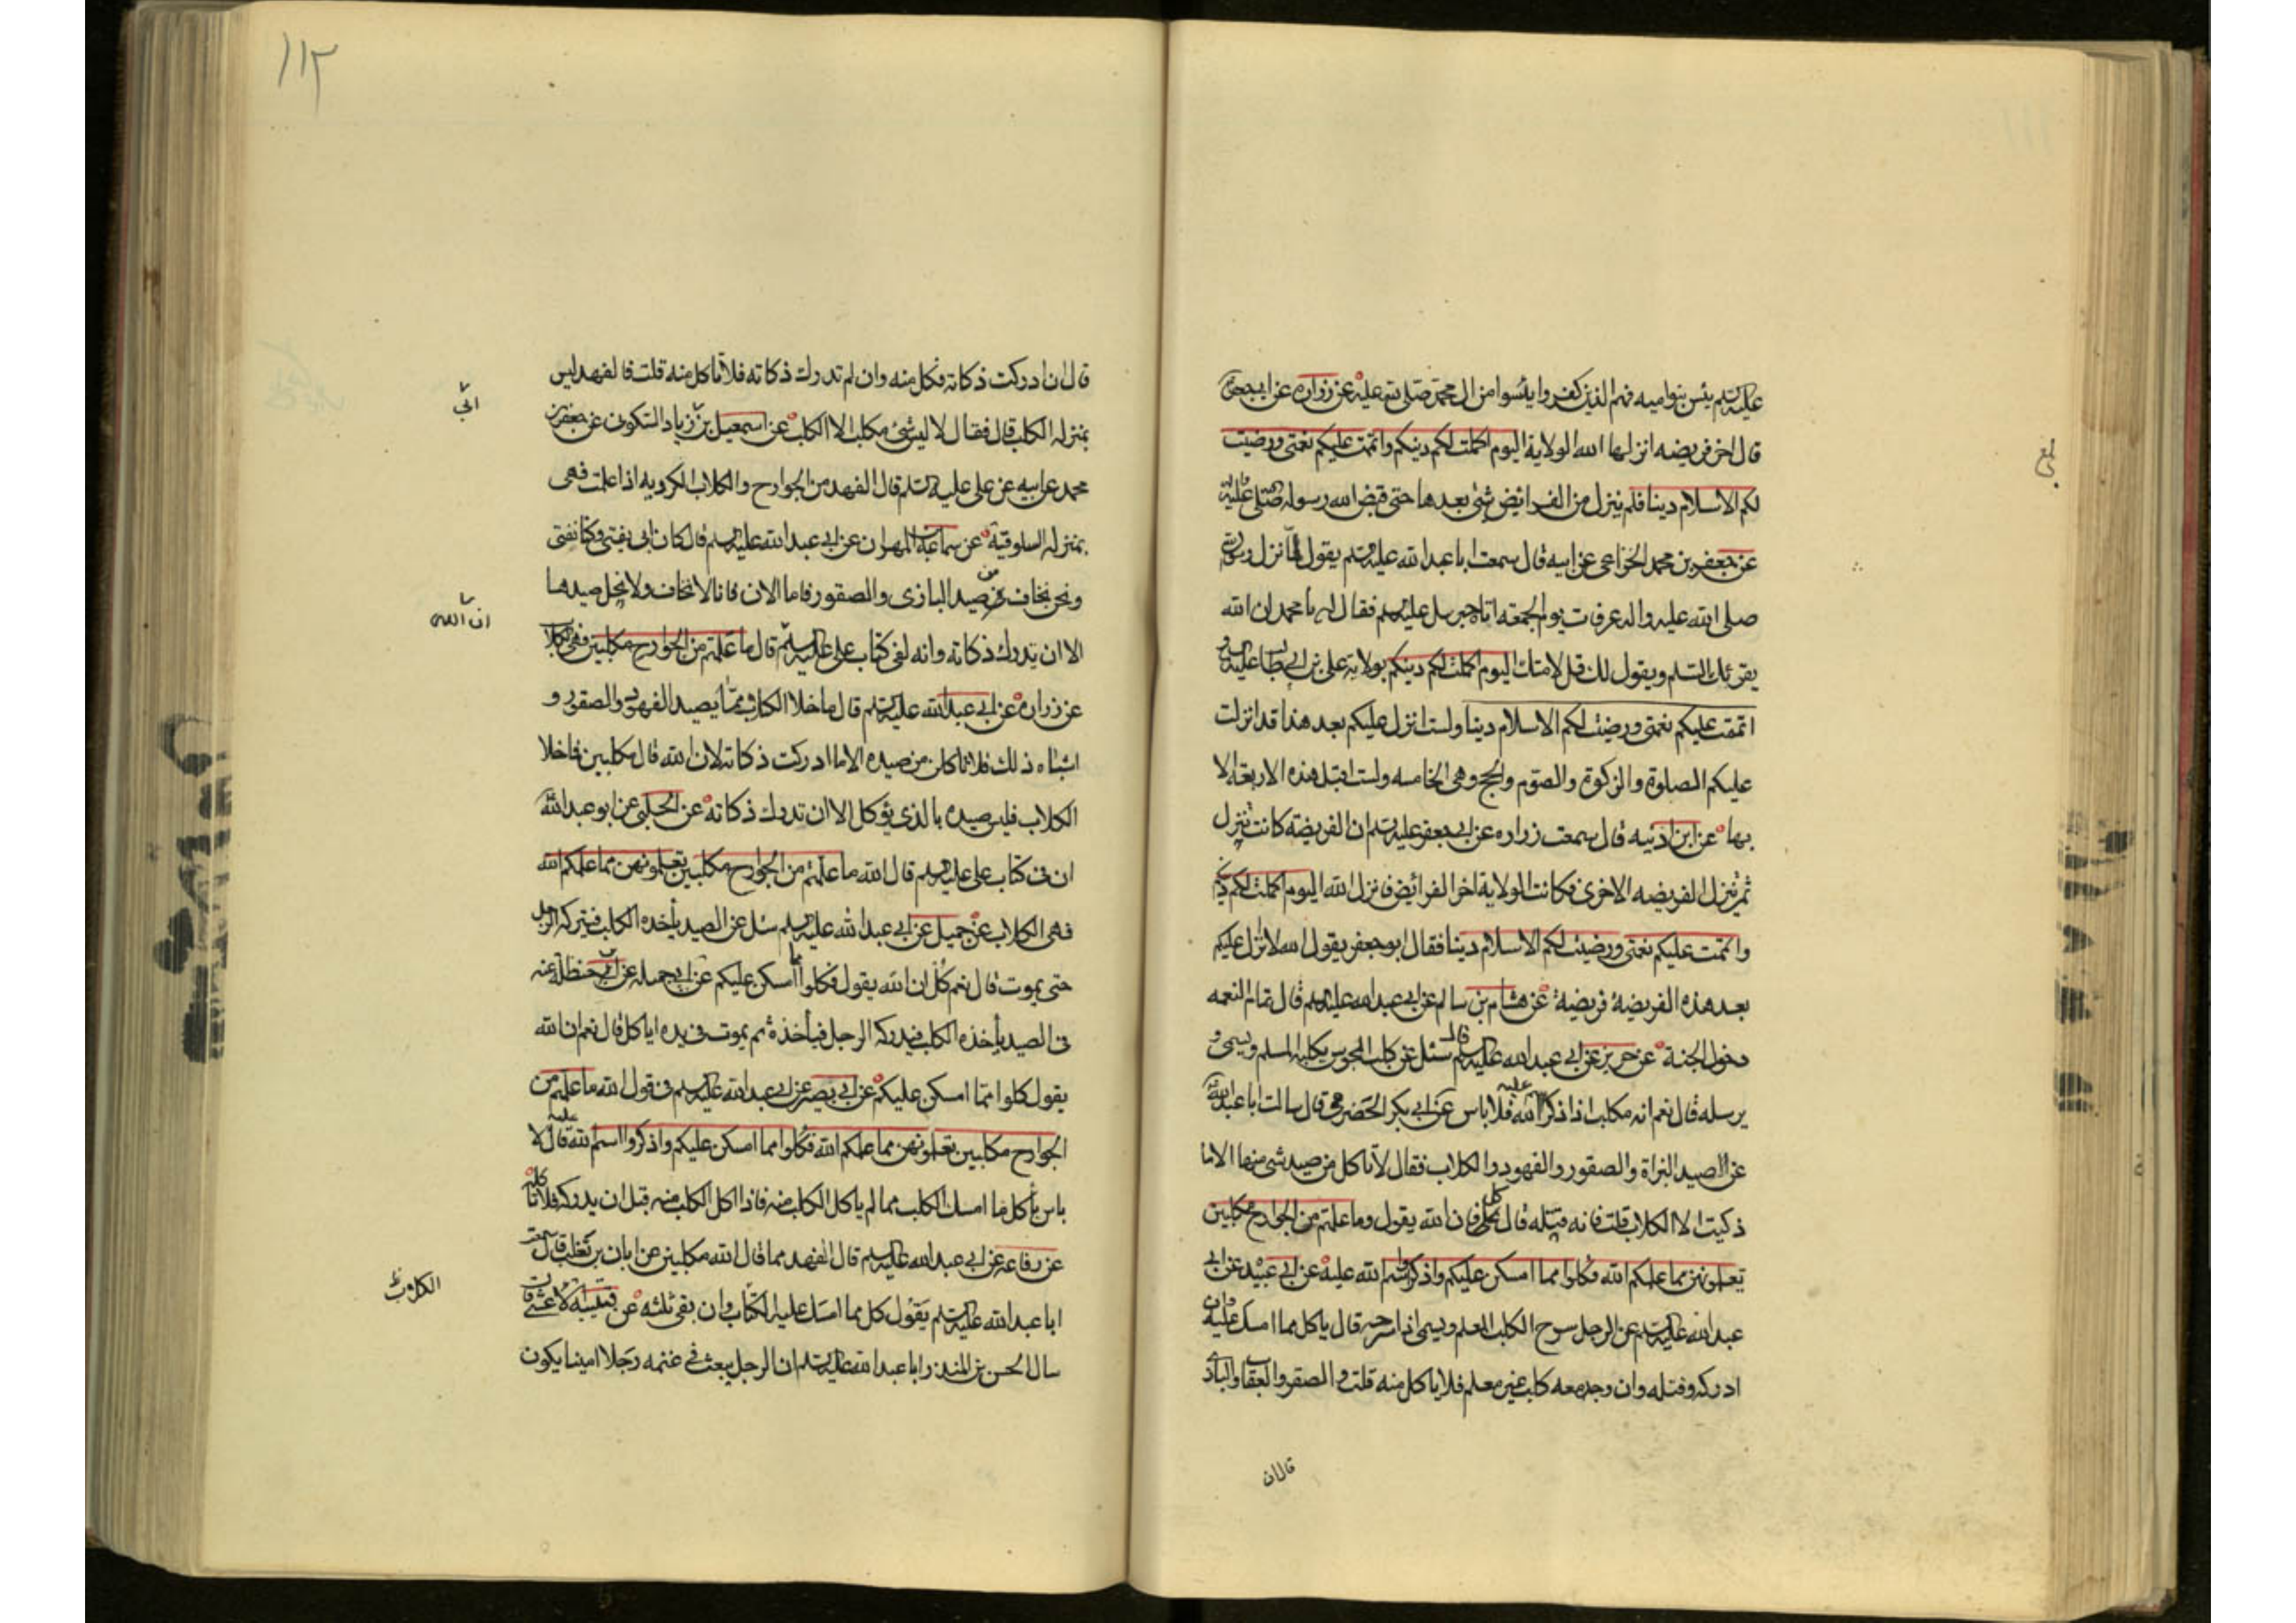 عليه السلم يئس بنو اميه فهم الذين كفروا يئسوا من ال محمد صلى الله عليه عن زراره عن ابي جعفر
قال اخر فريضه انزلها الله الولاية اليوم اكملت لكم دينكم واتممت عليكم نعمتى ورضيت
لكم الاسلام دينا فلم ينزل من الفرائض شئ بعدها حتى قبض الله رسوله صلى الله عليه واله
عن جعفر بن محمد الخزاعى عن ابيه قال سمعت ابا عبد الله عليه السلم يقول لما نزل رسول الله
صلى الله عليه واله عرفات يوم الجمعه اتاه جبرئيل عليه السلم فقال له يا محمد ان الله
يقرئك السلم ويقول لك قل لامتك اليوم اكملت لكم دينكم بولاية على بن ابى طالب عليه السلم و
اتممت عليكم نعمتى ورضيت لكم الاسلام دينا ولست انزل عليكم بعد هذا قد انزلت
عليكم الصلوة والزكوة والصوم والحج وهى الخامسه ولست اقبل هذه الاربعة الا
بها عن ابن اذينه قال سمعت زراره عن ابى جعفر عليه السلم ان الفريضة كانت تنزل
ثم تنزل الفريضه الاخرى فكانت الولاية اخر الفرائض فانزل الله اليوم اكملت لكم دينكم
واتممت عليكم نعمتى ورضيت لكم الاسلام دينا فقال ابو جعفر يقول الله لا انزل عليكم
بعد هذه الفريضة فريضة عن هشام بن سالم عن ابى عبد الله عليه السلم قال تمام النعمه
دخول الجنة عن حريز عن ابى عبد الله عليه السلم قال سئل عن كلب المجوس يكلبه المسلم ويسمى و
يرسله قال نعم انه مكلب اذا ذكر اسم الله عليه فلا باس عن ابى بكر الحضرمى قال سالت ابا عبد الله
عن الصيد البزاة والصقور والفهود والكلاب فقال لا تاكل من صيد شئ منها الا ما
ذكيت الا الكلاب قلت فانه قتله قال كل فان الله يقول وما علمتم من الجوارح مكلبين
تعلمونهن مما علمكم الله فكلوا مما امسكن عليكم واذكروا اسم الله عليه عن ابى عبيده عن ابى
عبد الله عليه السلم عن الرجل سرح الكلب المعلم ويسمى اذا سرحه قال ياكل مما امسك عليه وان
ادركه وقتله وان وجد معه كلب غير معلم فلا ياكل منه قلت و الصقر والعقاب والبازى
قال ان
قال ان ادركت ذكاته فكل منه وان لم تدرك ذكاته فلا تاكل منه قلت فالفهد ليس
بمنزله الكلب قال فقال لا ليس شئ مكلب الا الكلب عن اسمعيل بن زياد السكونى عن جعفر بن
محمد عن ابيه عن على عليه السلم قال الفهد من الجوارح والكلاب الكرديه اذا علمت فهى
بمنزله السلوقيه عن سماعة بن المهران عن ابى عبد الله عليه السلم قال كان ابى يفتى وكنا نفتى
ونحن نخاف من صيد البازى والصقور فاما الان فانا لا نخاف ولا نحل صيدها
الا ان يدرك ذكاته وانه لفى كتاب على عليه السلم قال ما علمتم من الجوارح مكلبين فهى الكلاب
عن زراره عن ابى عبد الله عليه السلم قال ما خلا الكلاب مما يصيد الفهود والصقور و
اشباه ذلك فلا تاكلن من صيده الا ما ادركت ذكاته لان الله قال مكلبين فما خلا
الكلاب فليس صيده بالذى يؤكل الا ان تدرك ذكاته عن الحلبى عن ابو عبد الله
ان فى كتاب على عليه السلم قال الله ما علمتم من الجوارح مكلبين تعلمونهن مما علمكم الله
فهى الكلاب عن جميل عن ابى عبد الله عليه السلم سئل عن الصيد يأخذه الكلب فيتركه الرجل
حتى يموت قال نعم كل ان الله يقول فكلوا مما امسكن عليكم عن ابى جميله عن ابى حنظلة عنه
فى الصيد يأخذه الكلب فيدركه الرجل فيأخذه ثم يموت فى يده اياكل قال نعم ان الله
يقول كلوا مما امسكن عليكم عن ابى بصير عن ابى عبد الله عليه السلم فى قول الله ما علمتم من
الجوارح مكلبين تعلمونهن مما علمكم الله فكلوا مما امسكن عليكم واذكروا اسم الله عليه قال لا
باس بأكل ما امسك الكلب مما لم ياكل الكلب منه فاذا اكل الكلب منه قبل ان يدركه فلا تاكله
عن رفاعه عن ابى عبد الله عليه السلم قال الفهد مما قال الله مكلبين عن ابان بن تغلب قال سمعت
ابا عبد الله عليه السلم يقول كل مما امسك عليه الكلاب وان بقى ثلثه عن قتيبه الاعشى قال
سال الحسن بن المنذر ابا عبد الله عليه السلم ان الرجل يبعث فى غنمه رجلا امينا يكون
١١٢